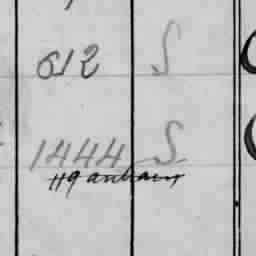 612 S
1444 S
119